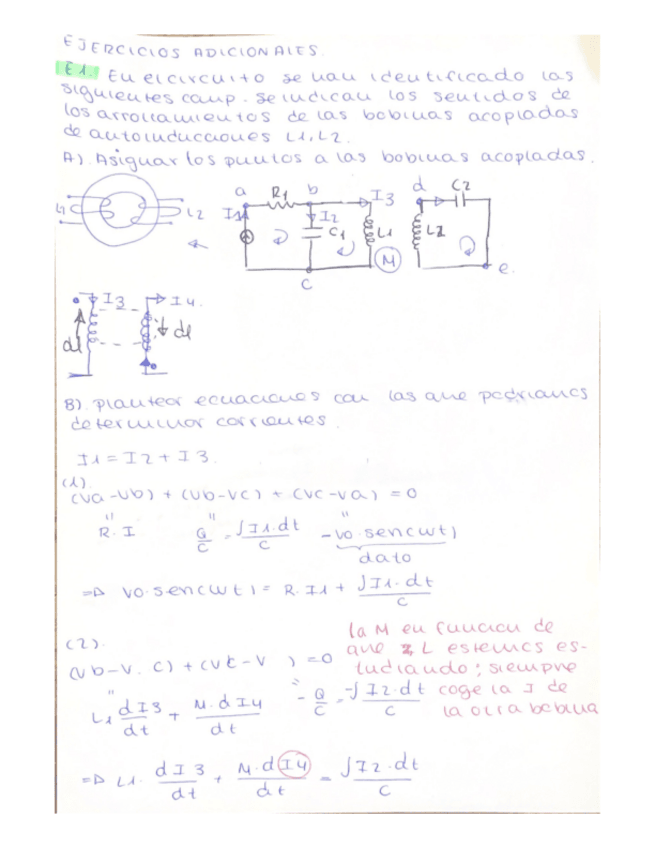 EJERCICIOS ADICIONALES.
E1. En el circuito se han identificado las
siguientes comp. se indican los sentidos de
los arrollamientos de las bobinas acopladas
de autoinducciones L1, L2.
A). Asignar los puntos a las bobinas acopladas.
a R1 b I3 d C2
L1 L2 I1 I2 C1 L1 L2
M e.
c
I3 I4.
dl dl
B). Plantear ecuaciones con las que podríamos
determinar corrientes.
I1 = I2 + I3.
(1).
(Va-Vb) + (Vb-Vc) + (Vc-Va) = 0
R. I Q/C = ∫I1.dt/C -Vo.sen(wt)
dato
=D Vo.sen(wt) = R.I1 + ∫I1.dt/C
(2).
(Vb-V. c) + (Vc-V ) = 0
L1 dI3/dt + M.dI4/dt - Q/C = -∫I2.dt/C
la M en función de
que L estemos es-
tudiando; siempre
coge la I de
la otra bobina
=D L1. dI3/dt + M.dI4/dt = ∫I2.dt/C